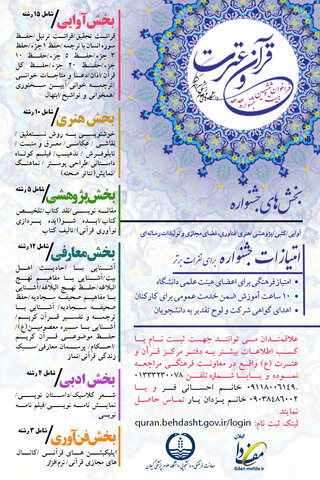 قرآن و عترت
بخش‌های جشنواره
آوایی/کتبی/پژوهشی/هنری/فناوری، فضای مجازی و تولیدات رسانه ای
امتیازات جشنواره برای نفرات برتر
امتیاز فرهنگی برای اعضای هیئت علمی دانشگاه
۱۰ ساعت آموزش ضمن خدمت عمومی برای کارکنان
اهدای گواهی شرکت و لوح تقدیر به دانشجویان
علاقمندان می توانند جهت ثبت نام یا
کسب اطلاعات بیشتر به دفتر مرکز قرآن و
عترت (ع) واقع در معاونت فرهنگی مراجعه
نموده و یابا شماره تلفن ۰۱۳۳۳۲۳۰۰۷۸
۰۹۱۱۸۰۰۶۱۴۹ خانم احسانی فر و یا
۰۹۰۳۸۴۸۶۰۰۲ خانم یزدان یار تماس حاصل
نمایند.
لینک ثبت نام: quran.behdasht.gov.ir/login
بخش آوایی/ شامل ۱۵ رشته
قرائت تحقیق/قرائت ترتیل/حفظ
سوره انسان با ترجمه/حفظ ۱ جزء/حفظ
۳ جزء/حفظ ۵ جزء/حفظ ۱۰
جزء/حفظ ۲۰ جزء/حفظ کل
قرآن/اذان/دعا و مناجات خوانی
/ترجمه خوانی/آیین سخنوری
/همخوانی و تواشیح/ابتهال
بخش هنری/ شامل ۱۰ رشته
خوشنویسی به روش نستعلیق/
نقاشی/عکاسی/معرق و منبت/
تابلوفرش/تذهیب/فیلم کوتاه
داستانی/طراحی پوستر/نماهنگ
نمایش(تئاتر صحنه)
بخش پژوهشی/ شامل ۵ رشته
مقاله نویسی/نقد کتاب/تلخیص
کتاب/ایده شو(ایده پردازی
نوآوری قرآنی)/تالیف کتاب
بخش معارفی/ شامل ۱۲ رشته
آشنایی با احادیث اهل
بیت(ع)/آشنایی با مفاهیم نهج
البلاغه/حفظ نهج البلاغه/آشنایی
با مفاهیم صحیفه سجادیه/حفظ
صحیفه سجادیه/آشنایی با
ترجمه و تفسیر قرآن کریم/
آشنایی با سیره معصومین(ع)/
حفظ موضوعی قرآن کریم
/احکام/پرسمان معارفی/سبک
زندگی قرآنی/نماز
بخش ادبی/ شامل ۴ رشته
شعر کلاسیک/داستان نویسی/
نمایش نامه نویسی/فیلم نامه
نویسی
بخش فن‌آوری/ شامل ۳ رشته
اپلیکیشن های قرآنی/کانال
های مجازی قرآنی/نرم افزار
مفدا گیلان
Gilan.mefda.ir